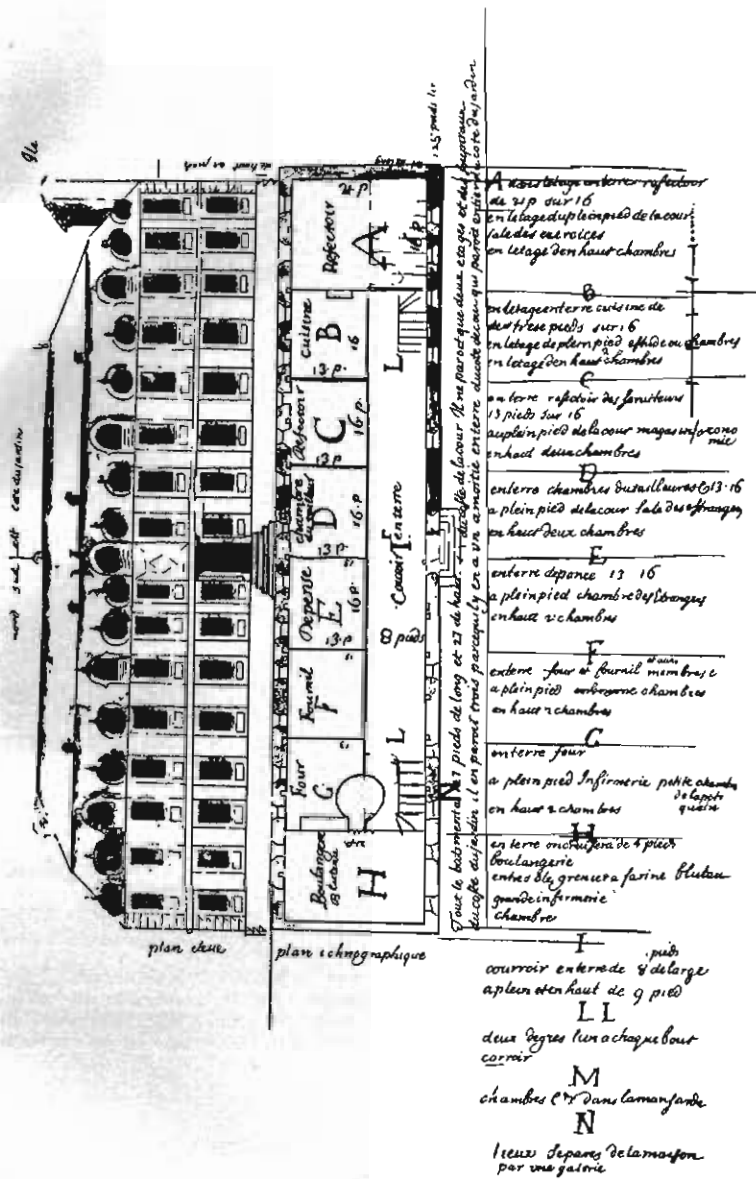 nord sud est coté du jardin
plan eleué
plan ichnographique
125 pieds
Refectoir
A
16 p.
cuisine
B
13. p.
16
Refectoir
C
13 p
16 p.
chambre
D
13 p.
16. p
Depense
E
13. p
16 p.
Fournil
F
Four
G
Boulangerie
Bluteau
H
L
Couroir I enterre
8 pieds
L
N
Tout le batiment a 127 pieds de long et 27 de haut du costé de la cour Il ne paroit que deux etages et
du costé du jardin il en paroit trois parcequil y en a un a moitié enterre du costé qui paroit entier du coté du jardin
A dans letage enterrer refectoir
de 21 p sur 16
en letage du plein pied de la cour
sale des exercices
en letage den haut chambres
B
en letage enterre cuisine de
trese pieds sur 16
en letage de plein pied chambres
en letage den haut chambres
C
en terre refectoir des seruiteurs
13 pieds sur 16
au plein pied de la cour magasin
en haut deux chambres
D
enterre chambres du tailleur 13. 16
a plein pied de la cour sale des estrangers
en haut deux chambres
E
enterre depance 13 16
a plein pied chambre des Etrangers
en haut 2 chambres
F
enterre four et fournil
a plein pied chambres
en haut 2 chambres
G
enterre four
a plein pied Infirmerie petite chambre
en haut 2 chambres
H
en terre de 4 pieds
boulangerie
grenier a farine bluteau
grande infirmerie
chambre
I
courroir enterre de 8 pieds de large
a plein et en haut de 9 pied
LL
deux degres lun a chaque bout
corroir
M
chambres dans la mansarde
N
lieux separes de la maison
par une galerie